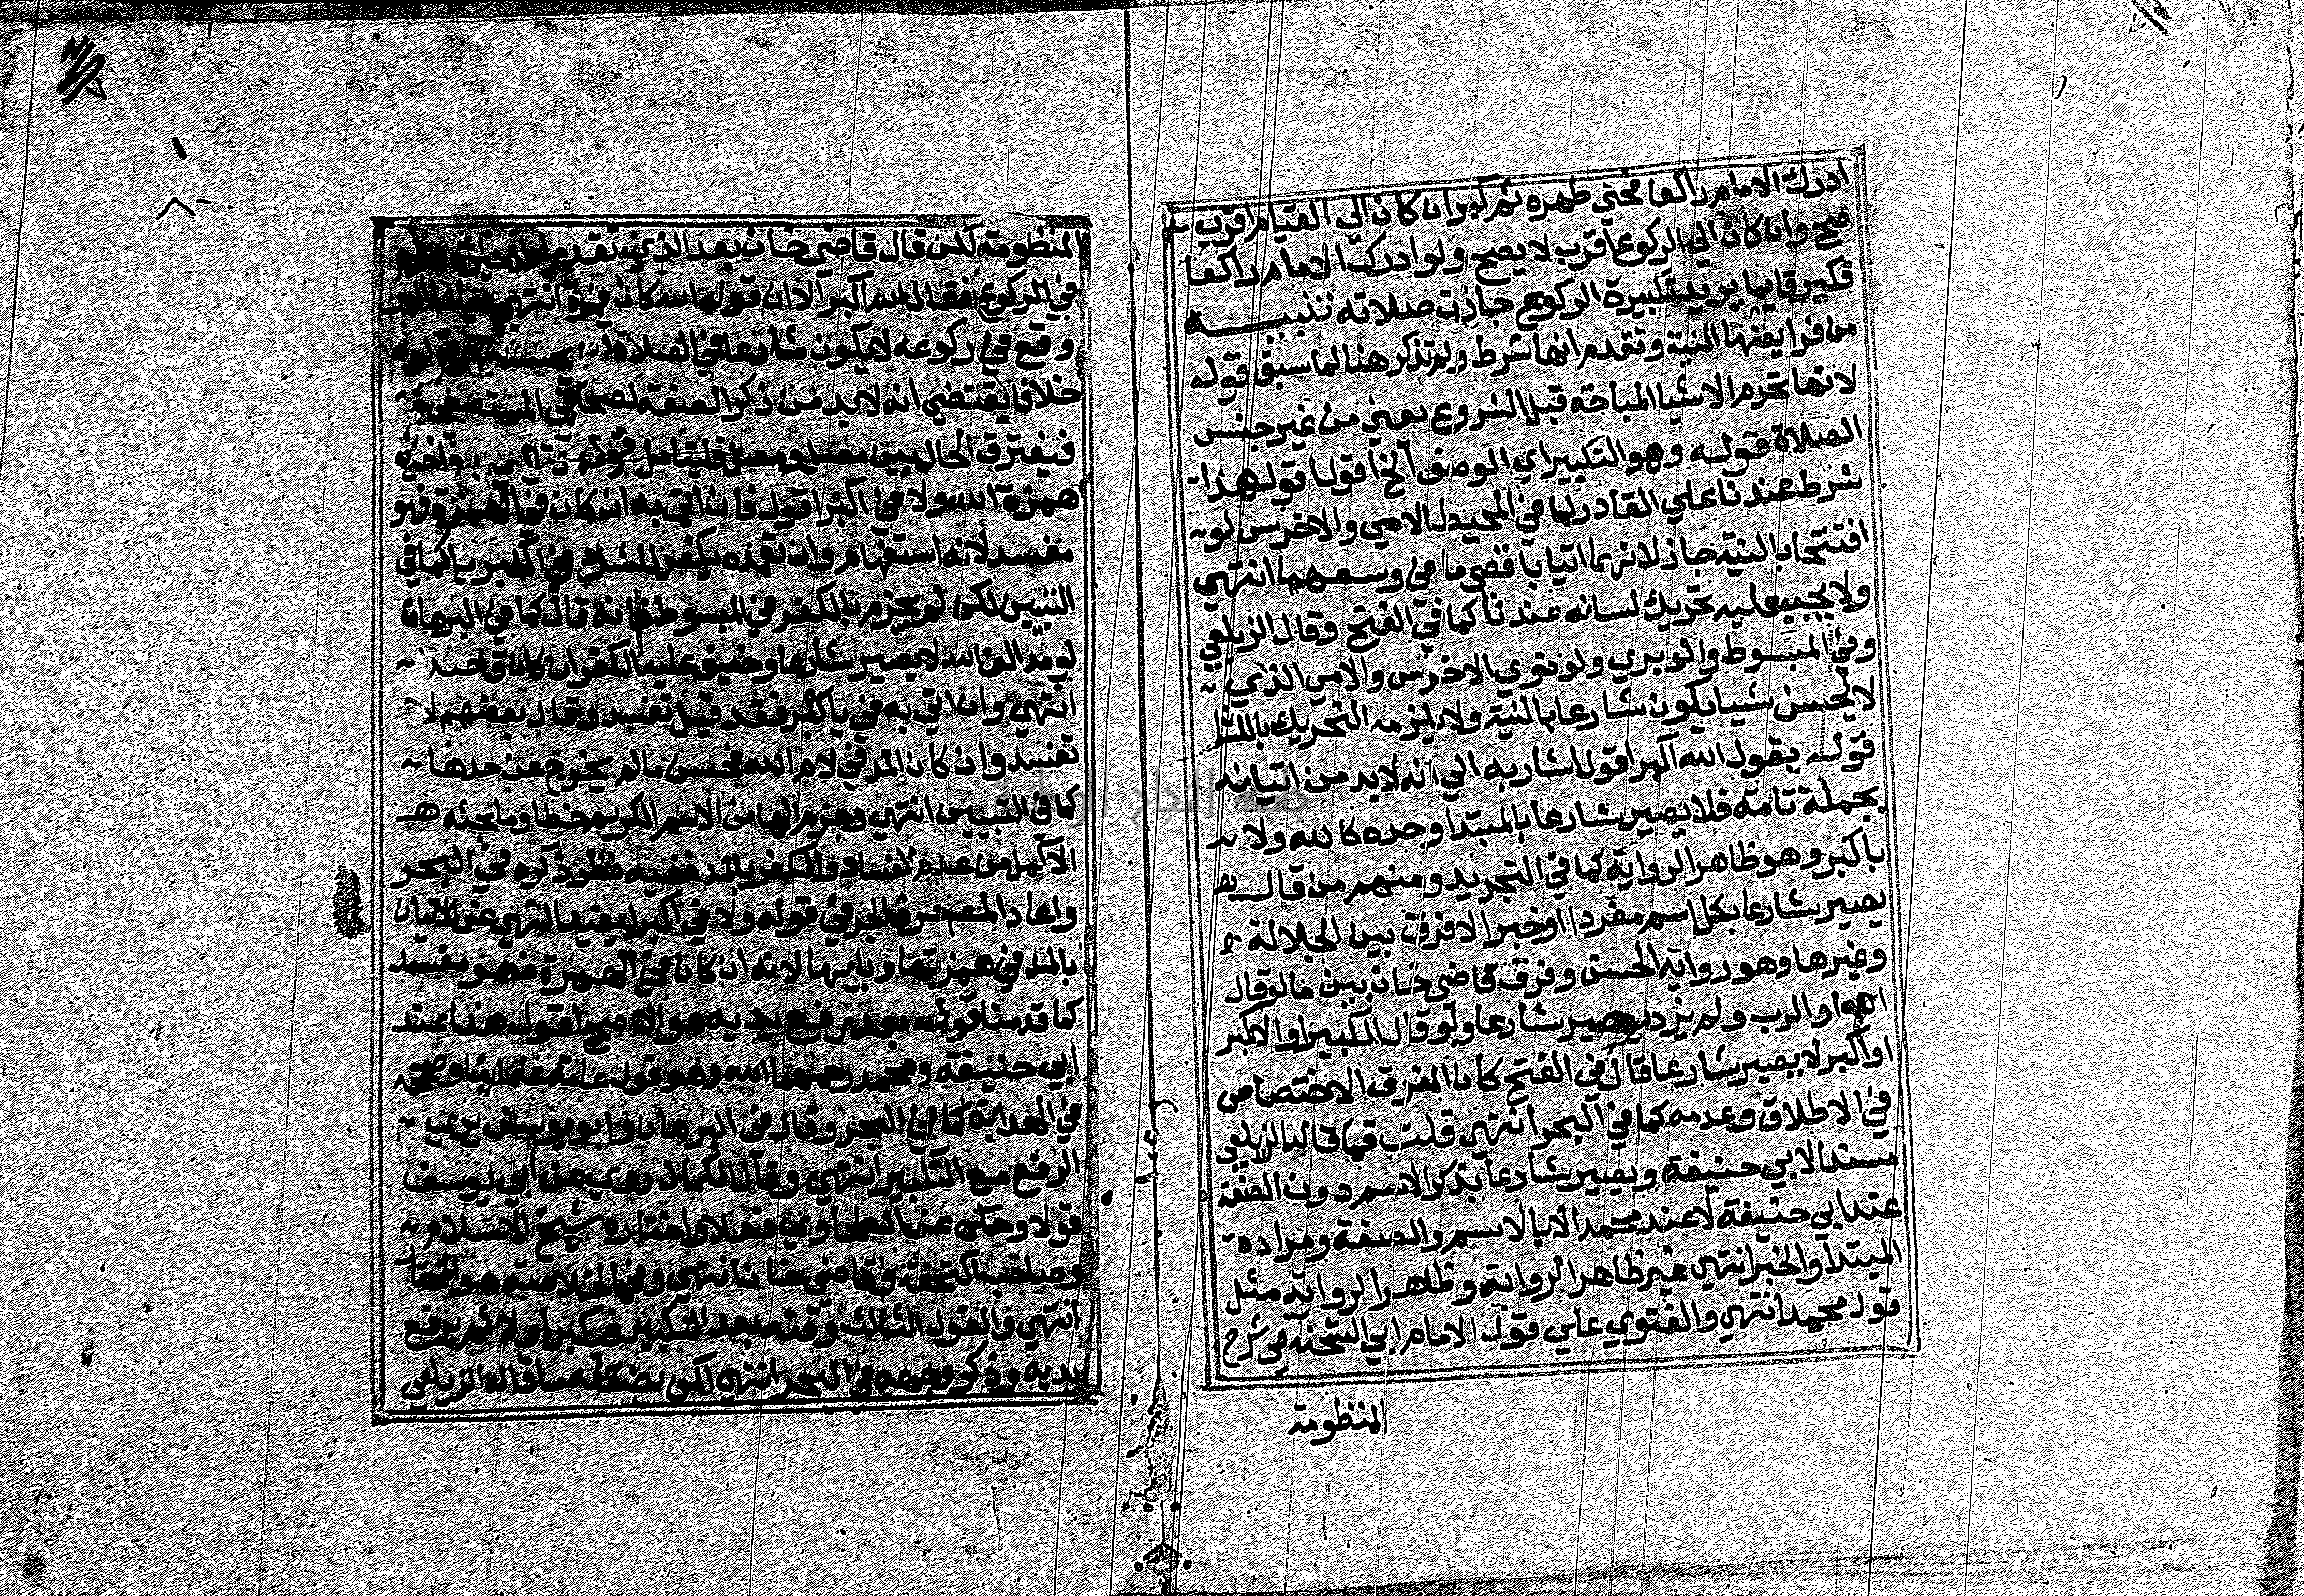 ادرك الامام راكعا فحنى ظهره ثم كبر ان كان الى القيام اقرب
صح وان كان الي الركوع اقرب لا يصح ولو ادرك الامام راكعا
فكبر قايما يريد تكبيرة الركوع جازت صلاته تنبيه
من فرايضها النية وتقدم انها شرط ولم تذكر هنا لما سبق قوله
لانها تحرم الاشيا المباحة قبل الشروع يعني من غير جنس
الصلاة قوله وهو التكبير اي الوصف الخ اقول قوله هذا
شرط عندنا علي القادر لما في المحيط الامي والاخرس لو
افتتحا بالنية جاز لانهما اتيا باقصي ما في وسعهما انتهي
ولا يجب عليه تحريك لسانه عندنا كما في الفتح وقال الزيلعي
وفي المبسوط والوبري ولو نوي الاخرس والامي الذي
لا يحسن شيا يكون شارعا بالنية ولا يلزمه التحريك باللسا
قوله يقول الله اكبر اقول اشار به الي انه لا بد من اتيانه
بجملة تامة فلا يصير شارعا بالمبتدا وحده كالله ولا
باكبر وهو ظاهر الرواية كما في التجريد ومنهم من قال
يصير شارعا بكل اسم مفردا او خبرا لا فرق بين الجلالة
وغيرها وهو رواية الحسن وفرق قاضي خان بين ما لو قال
الله او الرب ولم يزد يصير شارعا ولو قال الكبير او الاكبر
او اكبر لا يصير شارعا قال في الفتح كان الفرق الاختصاص
في الاطلاق وعدمه كما في البحر انتهي قلت فما قاله الزيلعي
مسندا لابي حنيفة ويصير شارعا بذكر الاسم دون الصفة
عند ابي حنيفة لا عند محمد الا بالاسم والصفة ومراده
المبتدا والخبر انتهي غير ظاهر الرواية وظاهر الرواية مثل
قول محمد انتهي والفتوي علي قول الامام ابي الشحنة في شرح
المنظومة
المنظومة لكن قال قاضي خان بعد الذي تقدم
في الركوع فقال الله اكبر الا ان قوله الله كان في
وقع في ركوعه لا يكون شارعا في الصلاة
خلافا يقتضي انه لا بد من ذكر الصفة
فيفترق الحال بين
همزة الله ولا في اكبر اقول فان اتي به ان كان في الهمزة فهو
مفسد لانه استفهام وان تعمده يكفر للشك في الكبريا كما في
التبيين لكن لم يجزم بالكفر في المبسوط فانه قال كما في البرهان
لو مد الف الله لا يصير شارعا وخيف عليه الكفر ان كان قاصدا
انتهي وان اتي به في باكبر فقد قيل تفسد وقال بعضهم لا
تفسد وان كان المد في لام الله فحسن مالم يخرج عن حدها
كما في التبيين انتهي
الاكمل من عدم الفساد والكفر بالمد ففيه نظر ذكره في البحر
واعاد المص حرف الجر في قوله ولا في اكبر ليفيد النهي عن الاتيان
بالمد في همزتها وبايها لانه ان كان في الهمزة فهو مفسد
كما قدمنا قوله بعد رفع يديه هو الاصح اقول هذا عند
ابي حنيفة ومحمد رحمهما الله وهو قول عامة علماينا وصححه
في الهداية كما في البحر وقال في البرهان وابو يوسف يري
الرفع مع التكبير انتهي وقال الكمال روي عن ابي يوسف
قولا وحكي عن الطحاوي فعلا واختاره شيخ الاسلام
وصاحب التحفة وقاضي خان انتهي وفي الخلاصة هو المختار
انتهي والقول الثالث وقته بعد التكبير فيكبر اولا ثم يرفع
يديه وذكر وجهه في البحر انتهي لكن يضعفه ما قاله الزيلعي